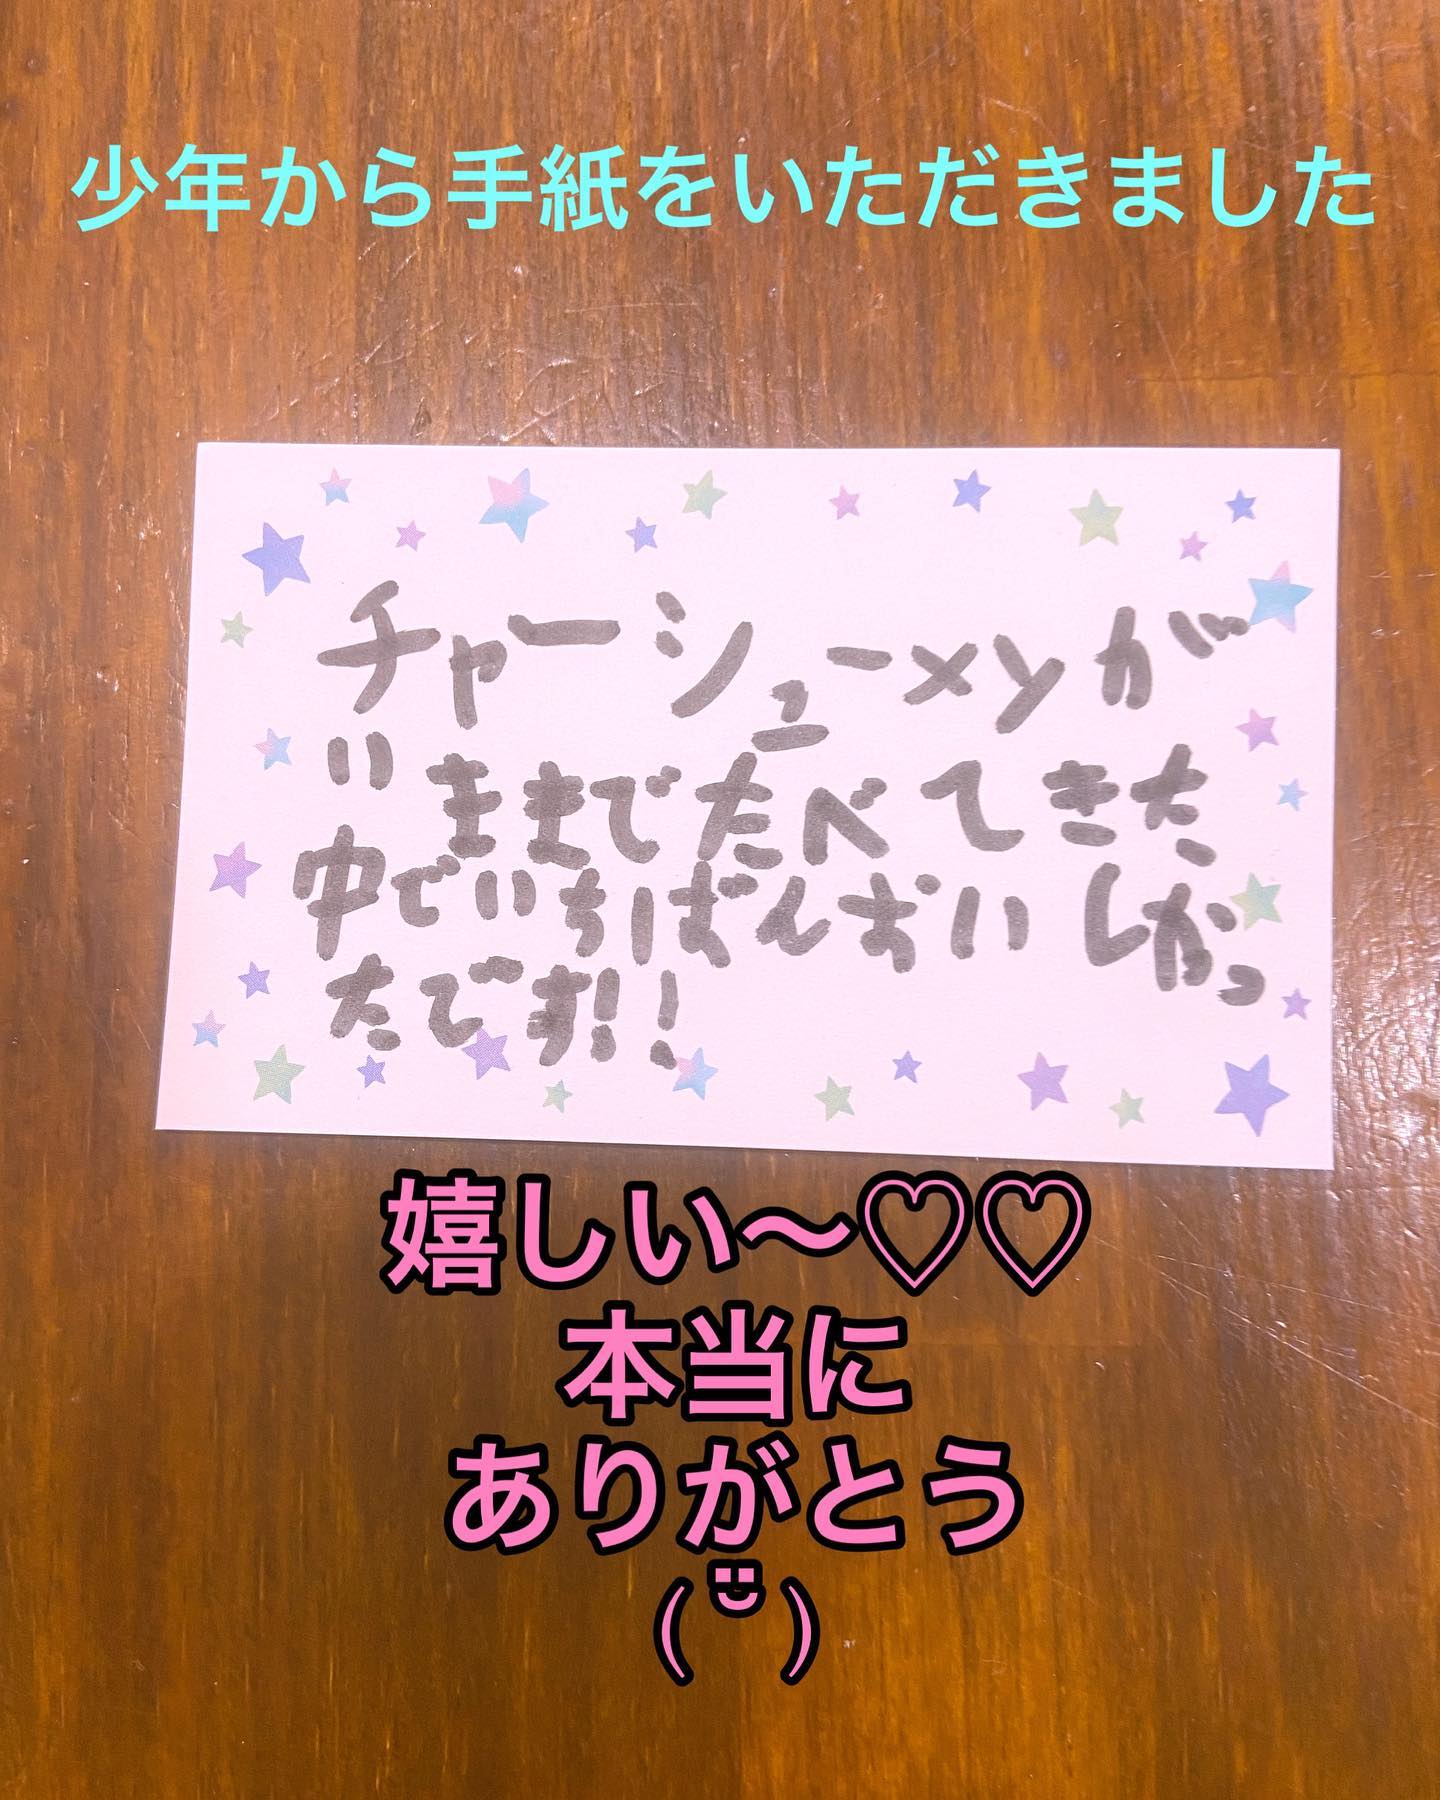 少年から手紙をいただきました
チャーシューメンが
いままでたべてきた
中でいちばんおいしかっ
たです!!
嬉しい〜♡♡
本当に
ありがとう
(¨̮)